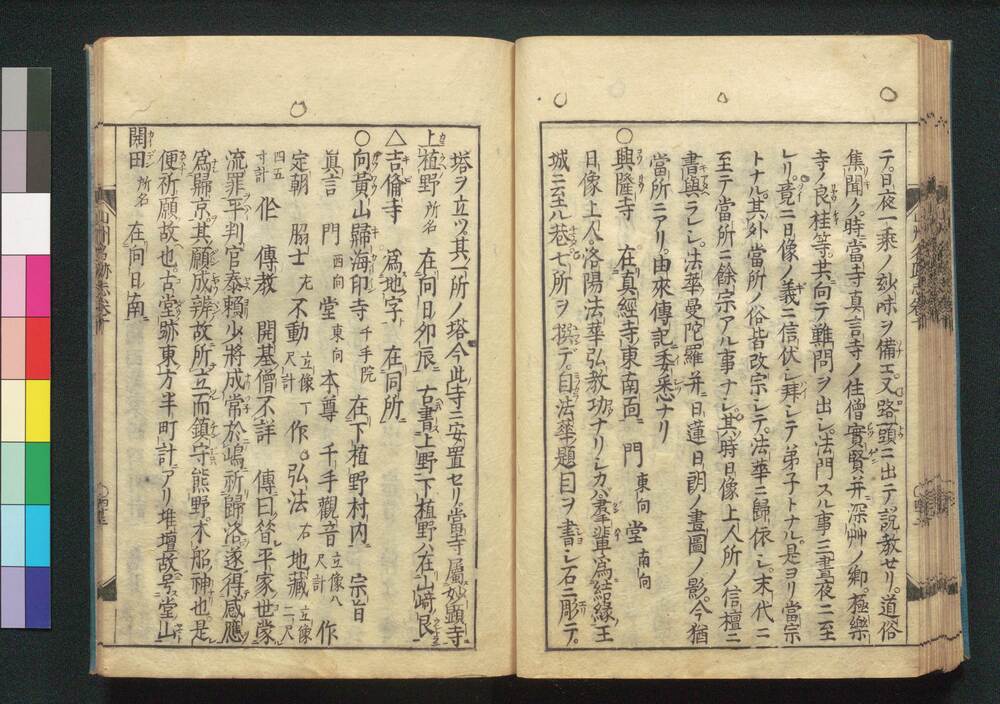 テ。日夜一乗ノ玅味ヲ備エ又路頭ニ出テ説教セリ。道俗
集聞ノ時當寺真言寺ノ住僧實賢并深艸ノ郷。極樂
寺ノ良桂等。共ニ向テ難問ヲ出シ。法門スル事三晝夜ニ至
レリ。竟ニ日像ノ義ニ信伏シ拜シテ弟子トナル。是ヨリ當宗
トナル。其外當所ノ俗皆改宗シテ。法華ニ歸依シ。末代ニ
至テ當所ニ餘宗アル事ナシ。其時日像上人所ノ信檀ニ
書與ラレシ。法華曼陀羅并日蓮日朗ノ畫圖ノ影。今猶
當所ニアリ。由來傳記委悉ナリ
○興隆寺 在真經寺東南百 門 東向 堂 南向
日像上人。洛陽法華弘教功ナリシカハ。輩為結縁王
城ニ至ル巷七所ヲ撰テ。自法華題目ヲ書シ石ニ彫テ。
塔ヲ立ツ。其一所ノ塔今此寺ニ安置セリ當寺屬妙顕寺
上植野 所名 在向日卯辰 古書上野下植野今在山﨑艮
△吉備寺 為地字 在同所
○向黄山歸海印寺 千手院 在下植野村内 宗旨
真言 門 西向 堂 東向 本尊 千手觀音 立像八尺計 作
定朝 脇士 左 不動 立像尺計 作 弘法 右 地藏 立像二尺
四五寸計 作 傳教 開基僧不詳 傳曰昝平家世蒙
流罪平判官泰賴少將成常於嶋祈歸洛遂得感應
為歸京。其願成辨故所立而鎮守熊野本船神也是
便祈願故也。古堂跡東方半町計アリ堆壇故号堂山
開田 所名 在向日南
山州名跡志巻十